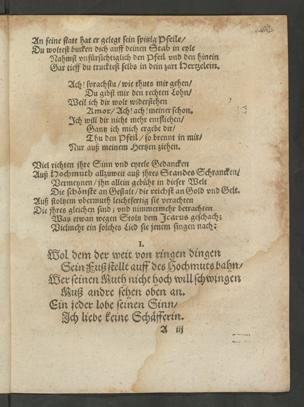 An seine statt hat er gelegt sein spitzig Pfeile/
Du woltest bucken dich auff deinen Stab in eyle
Nahmst unfürsichtiglich den Pfeil und den hinein
Gar tieff du trucktest selbs in dein zart Hertzelein.
Ach! sprachstu/ wie thuts mir gehen/
Du gibst mir den rechten Lohn/
Weil ich dir wolt widerstehen
Amor/ Ach! ach! meiner schon.
Ich will dir nicht mehr entfliehen/
Gantz ich mich ergebe dir/
Thu den Pfeil/ so brennt in mir/
Nur auß meinem Hertzen ziehen.
Viel richten ihre Sinn und eytele Gedancken
Auß Hochmuth allzuweit auß ihres Standes Schrancken/
Vermeynen/ ihn allein gebühr in dieser Welt
Die schönste an Gestalt/ die reichst an Gold und Gelt.
Auß stoltzem übermuth leichtfertig sie verachten
Die ihres gleichen sind/ und nimmermehr betrachten
Was etwan wegen Stoltz dem Icarus geschach:
Vielmehr ein solches Lied sie jenem singen nach:
I.
Wol dem der weit von ringen dingen
Sein Fuß stellt auff des Hochmuts bahn/
Wer seinen Muth nicht hoch will schwingen
Muß andre sehen oben an.
Ein jeder lobe seinen Sinn/
Ich liebe keine Schäfferin.
A iij